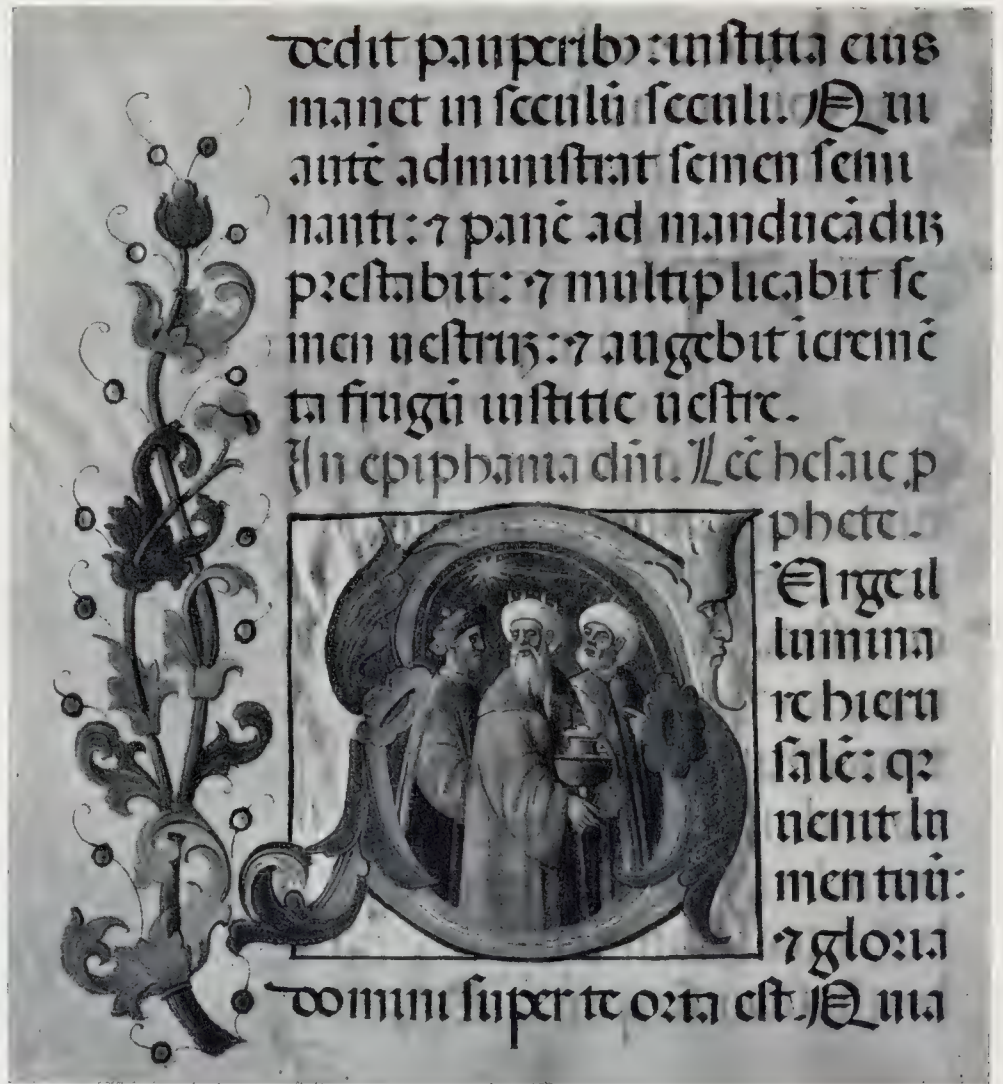 dedit pauperibꝰ: iuſtitia eius
manet in ſeculū ſeculi. Qui
autē adminiſtrat ſemen ſemi
nanti: ⁊ panē ad manducāduꝫ
preſtabit: ⁊ multiplicabit ſe
men ueſtruꝫ: ⁊ augebit īcremē
ta frugū iuſtitie ueſtre.
In epiphania dn̄i. Lec̄ heſaie ꝓ
phete.
SUrge il
lumina
re hieru
ſalē: qꝛ
uenit lu
men tuū:
⁊ gloria
domini ſuper te orta eſt. Quia